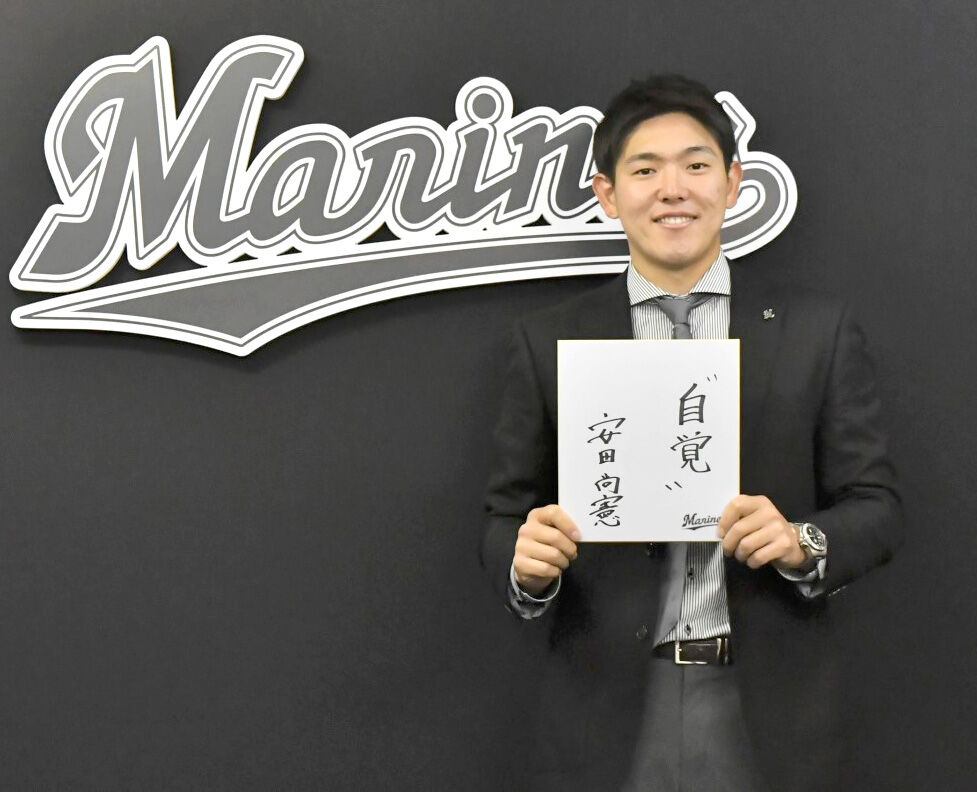 Marines
"自覚"
安田尚憲
Marines